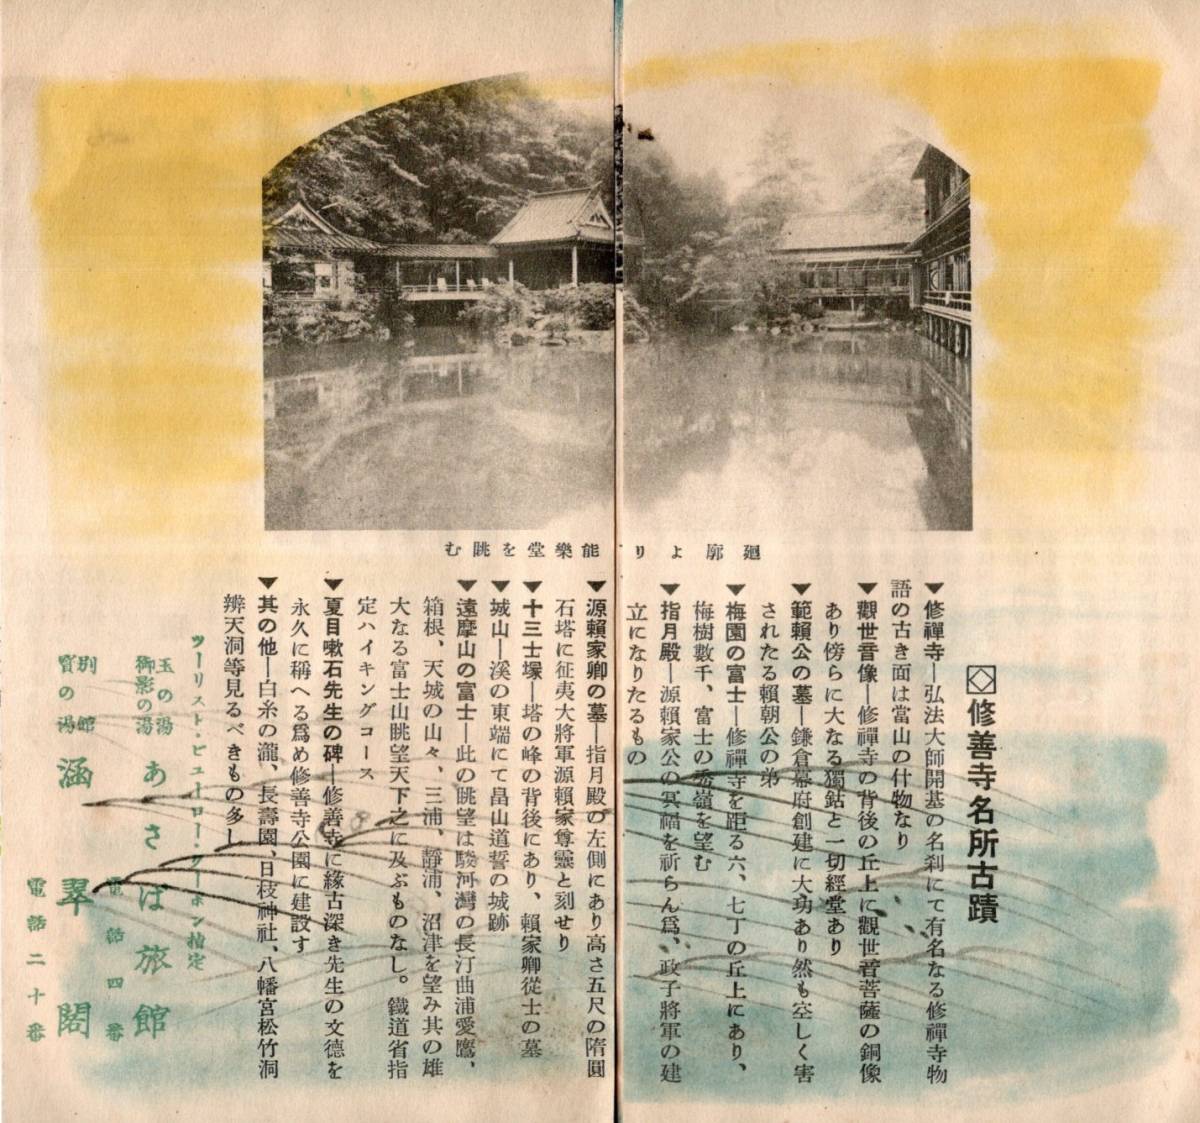 廻廓より能樂堂を眺む
修善寺名所古蹟
▼修禪寺―弘法大師開基の名刹にて有名なる修禪寺物
語の古き面は當山の什物なり
▼觀世音像―修禪寺の背後の丘上に觀世音菩薩の銅像
あり傍らに大なる獨鈷と一切經堂あり
▼範賴公の墓―鎌倉幕府創建に大功あり然も空しく害
されたる賴朝公の弟
▼梅園の富士―修禪寺を距る六、七丁の丘上にあり、
梅樹數千、富士の秀嶺を望む
▼指月殿―源賴家公の冥福を祈らん爲、政子將軍の建
立になりたるもの
▼源賴家卿の墓―指月殿の左側にあり高さ五尺の隋圓
石塔に征夷大將軍源賴家尊靈と刻せり
▼十三士塚―塔の峰の背後にあり、賴家卿從士の墓
▼城山―溪の東端にて畠山道誓の城跡
▼遠摩山の富士―此の眺望は駿河灣の長汀曲浦愛鷹、
箱根、天城の山々、三浦、靜浦、沼津を望み其の雄
大なる富士山眺望天下之に及ぶものなし。鐵道省指
定ハイキングコース
▼夏目嗽石先生の碑―修善寺に緣古深き先生の文德を
永久に稱へる爲め修善寺公園に建設す
▼其の他―白糸の瀧、長壽園、日枝神社、八幡宮松竹洞
辨天洞等見るべきもの多し
ツーリスト・ビューロー・クーポン指定
玉の湯
御影の湯
あさば旅館
電話四番
別館
寳の湯
涵翠閣
電話二十番